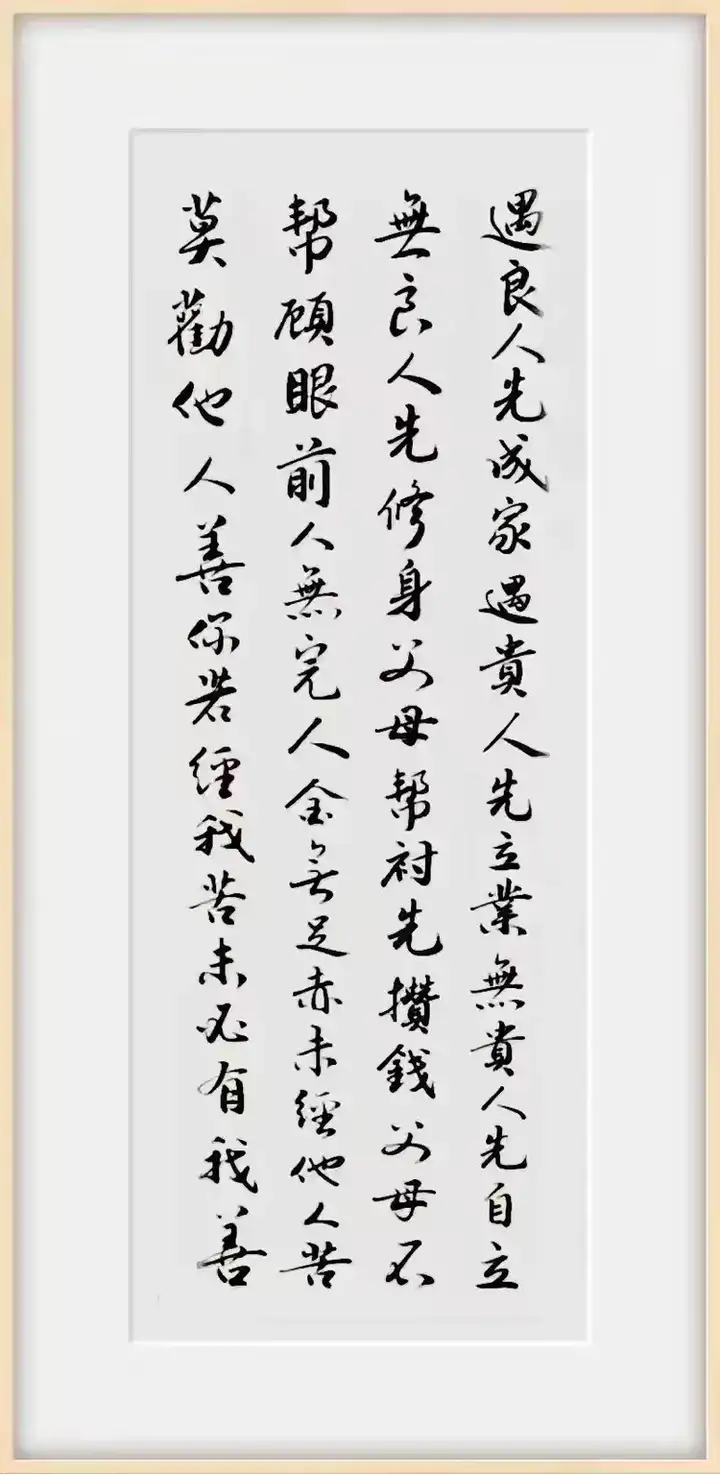 遇良人先成家遇貴人先立業無貴人先自立
無良人先修身父母幫衬先攢錢父母不
幫顧眼前人無完人金無足赤未經他人苦
莫勸他人善你若經我苦未必有我善